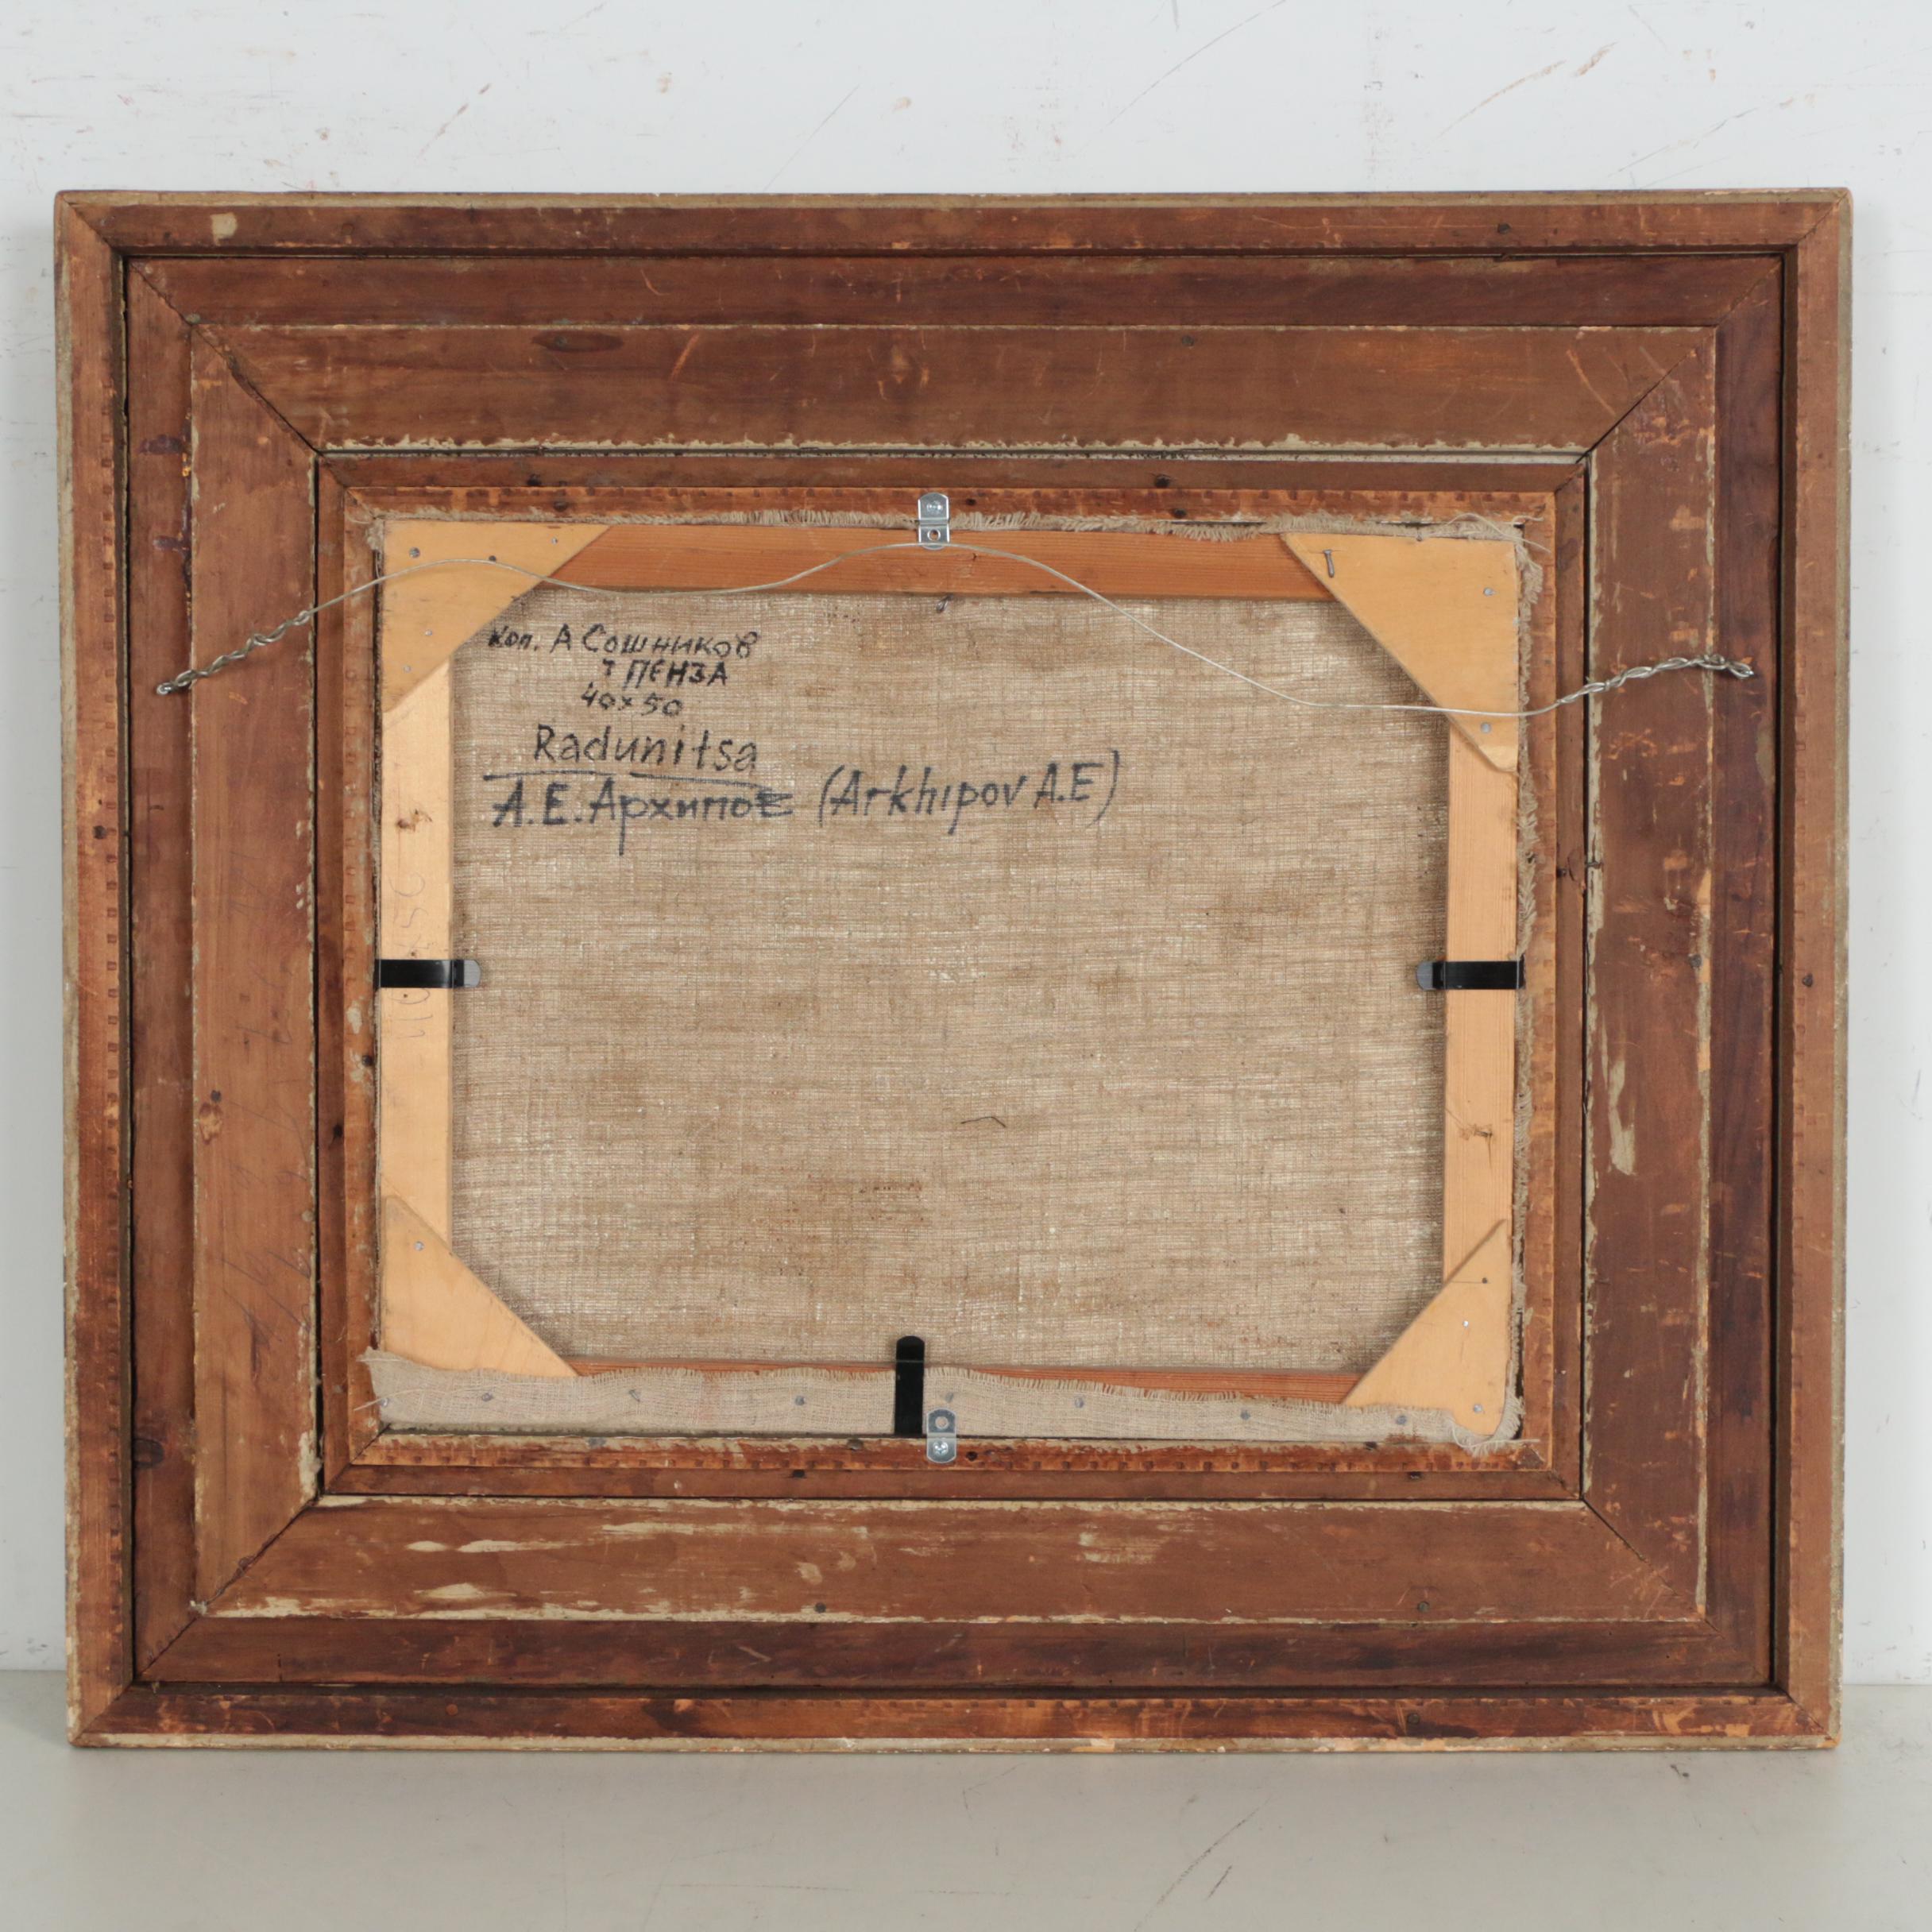 коп. А Сошников
г ПЕНЗА
40x50
Radunitsa
А.Е. Архипов (Arkhipov A.E)
40x50